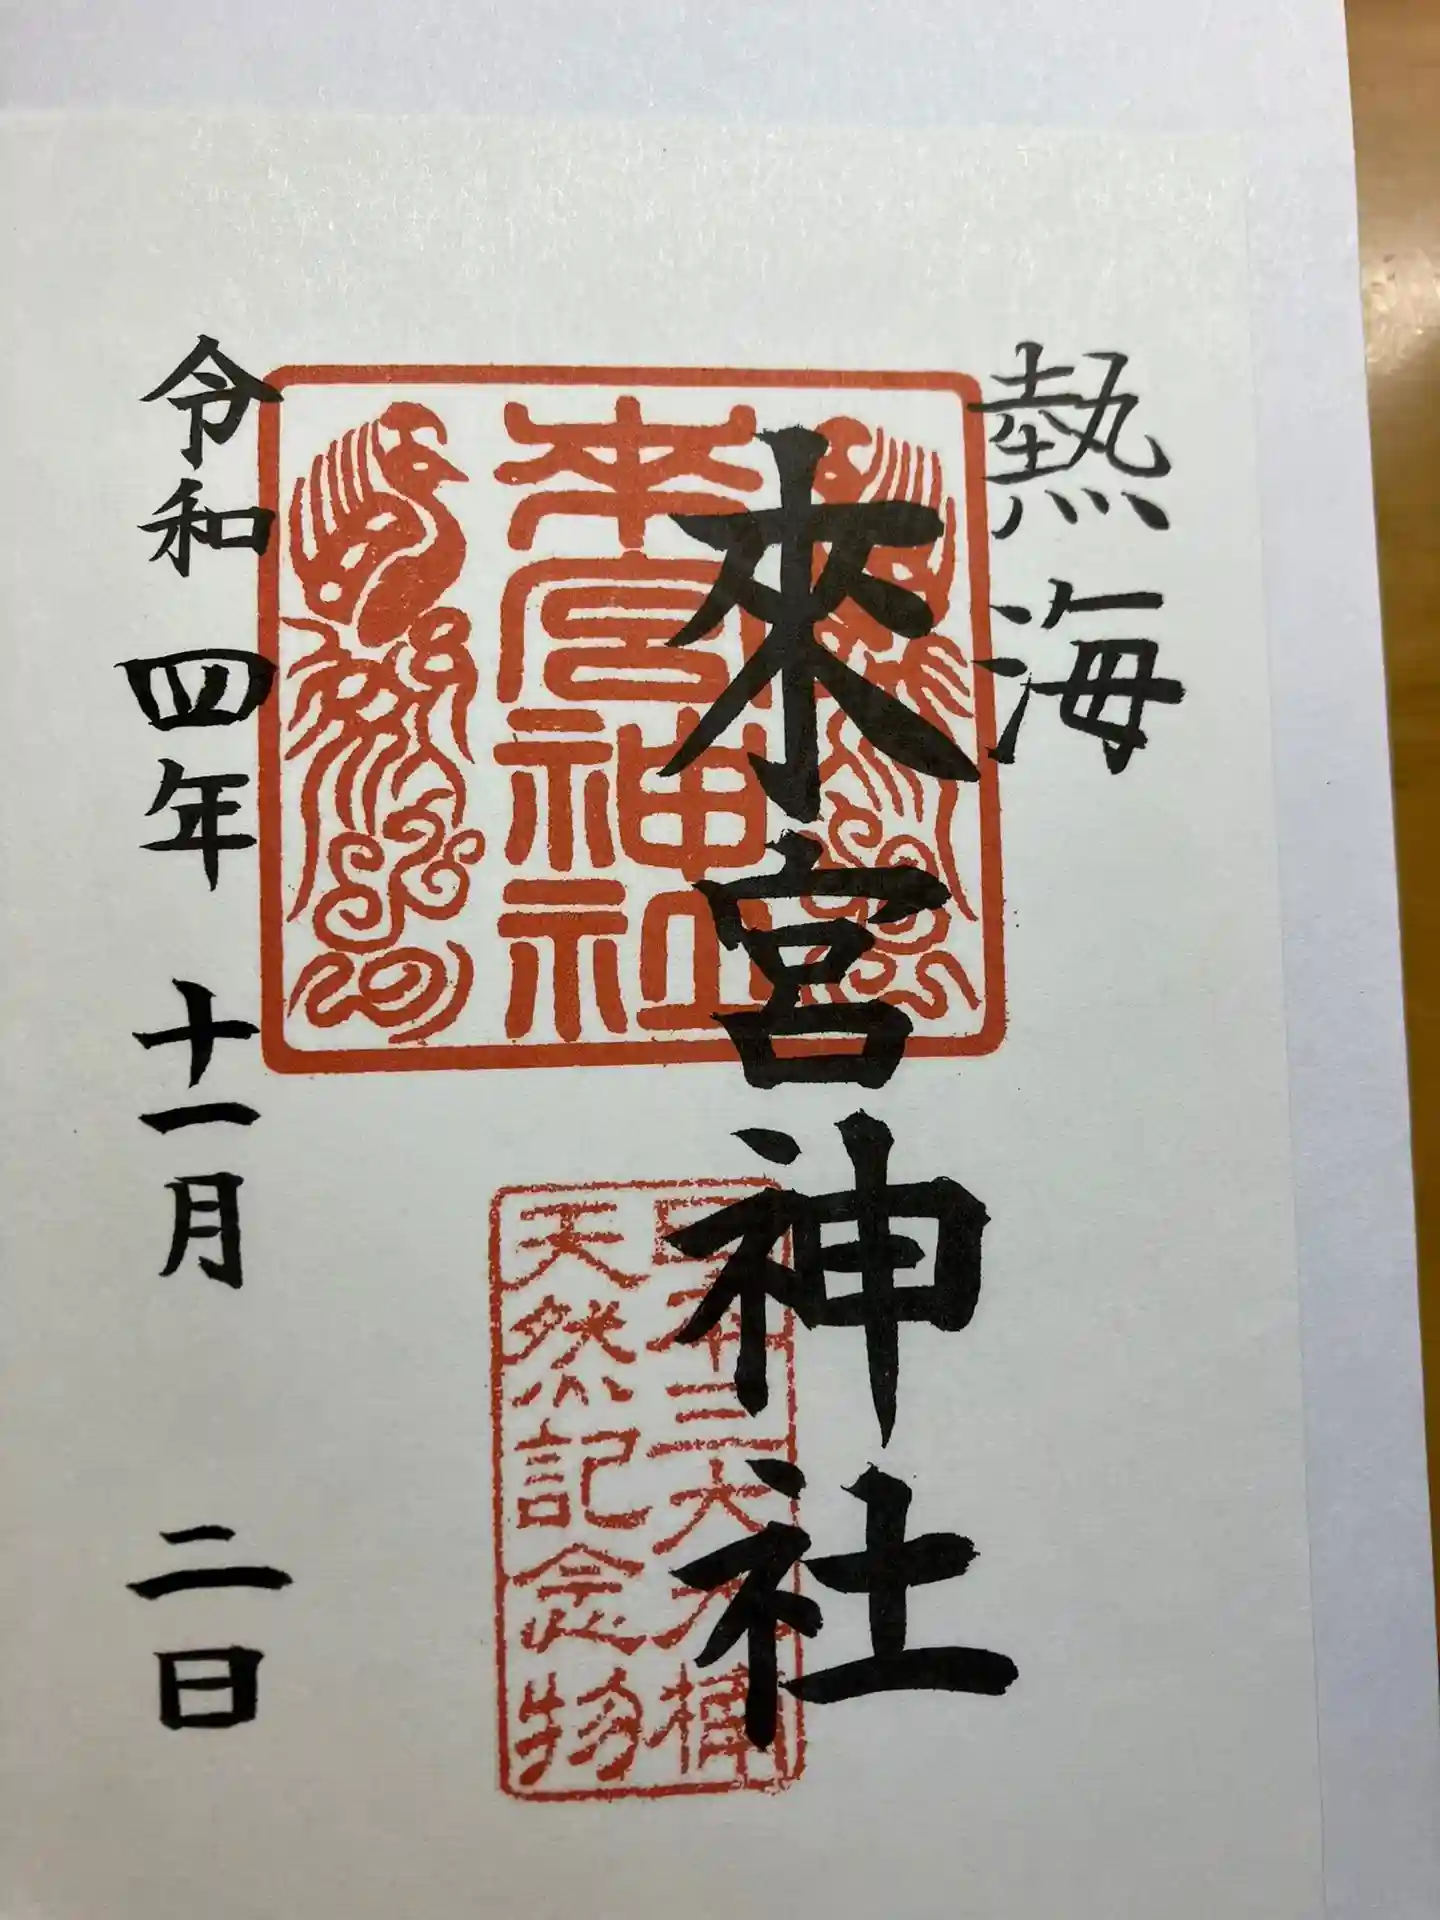 熱海
來宮神社
来宮神社
日本三大大楠
天然記念物
令和四年十一月二日